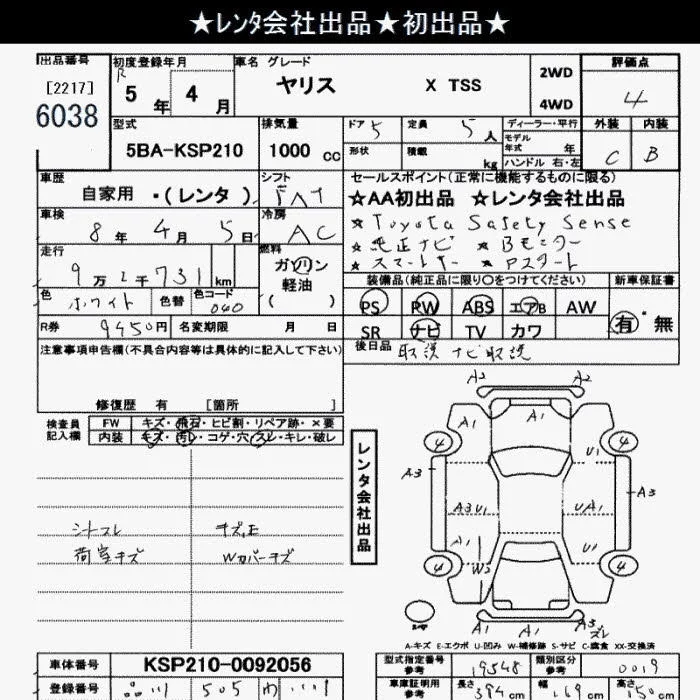 ★レンタ会社出品★初出品★
出品番号 初度登録年月 車名 グレード 評価点
[2217] R 5年 4月 ヤリス X TSS 2WD 4
6038 4WD
型式 排気量 ドア 5 定員 5人 ディーラー・平行 外装 内装
モデル
年式 年
5BA-KSP210 1000 cc 形状 積載 kg ハンドル 右・左 C B
車歴 シフト セールスポイント(正常に機能するものに限る)
自家用 ・(レンタ) FAT ☆AA初出品 ☆レンタ会社出品
車検 8年 4月 5日 冷房 AC ★ Toyota Safety Sense
★ 純正ナビ ★ Bモニター
走行 燃料 ★ スマートキー ★ Pスタート
9万2千731km ガソリン 装備品(純正品に限り○をつけてください) 新車保証書
軽油
色 ホワイト 色替 色コード 040 ( ) PS PW ABS エアB AW 有・無
R券 9450円 名変期限 月 日 SR ナビ TV カワ
注意事項申告欄(不具合内容等は具体的に記入して下さい) 後日品 取説 ナビ取説
修復歴 有 [箇所 ]
検査員 FW キズ・飛石・ヒビ割・リペア跡・×要
記入欄 内装 キズ・汚レ・コゲ・穴・スレ・キレ・破レ
A2 A2
A1 A1
4 U1 4
A3 A3
レンタ会社出品
A3U1 UA1
シートスレ
荷室キズ Wカバーキズ
A1 U1
4 W2 4
A1 A1 A3
スレ
A-キズ E-エクボ U-凹み W-補修跡 S-サビ C-腐食 XX-交換済
車体番号 KSP210-0092056 型式指定番号 参考 19548 類別区分 参考 0019
登録番号 品川 505 わ 車庫証明用 参考 長さ 394cm 幅 cm 高さ 150cm